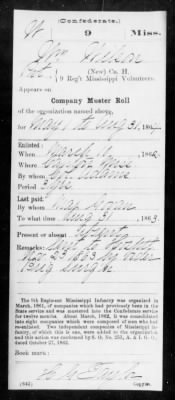 (Confederate.)
W 9 Miss.
Wm. Wilson
Pvt. (New) Co. H,
9 Reg't Mississippi Volunteers.
Appears on
Company Muster Roll
of the organization named above,
for May 1 to Aug 31, 186
Enlisted:
When March 11, 1862.
Where
By whom Adams
Period 3 yrs
Last paid:
By whom Maj.
To what time Aug 31, 1863.
Present or absent Absent
Remarks: Sent to Hospt
May 23 1863 by order
Brig Surgn
The 9th Regiment Mississippi Infantry was organized in
March, 1861, of companies which had previously been in the
State service and was mustered into the Confederate service
for twelve months. About March, 1862, it was
into eight companies which were composed of men who had
re-enlisted. Two independent companies of Mississippi Infantry,
one of which this is one, were added to the organization
and this action was confirmed by S. O. No. 253, A. & I. G. O.,
dated October 27, 1862.
Book mark:
(642)
Copyist.